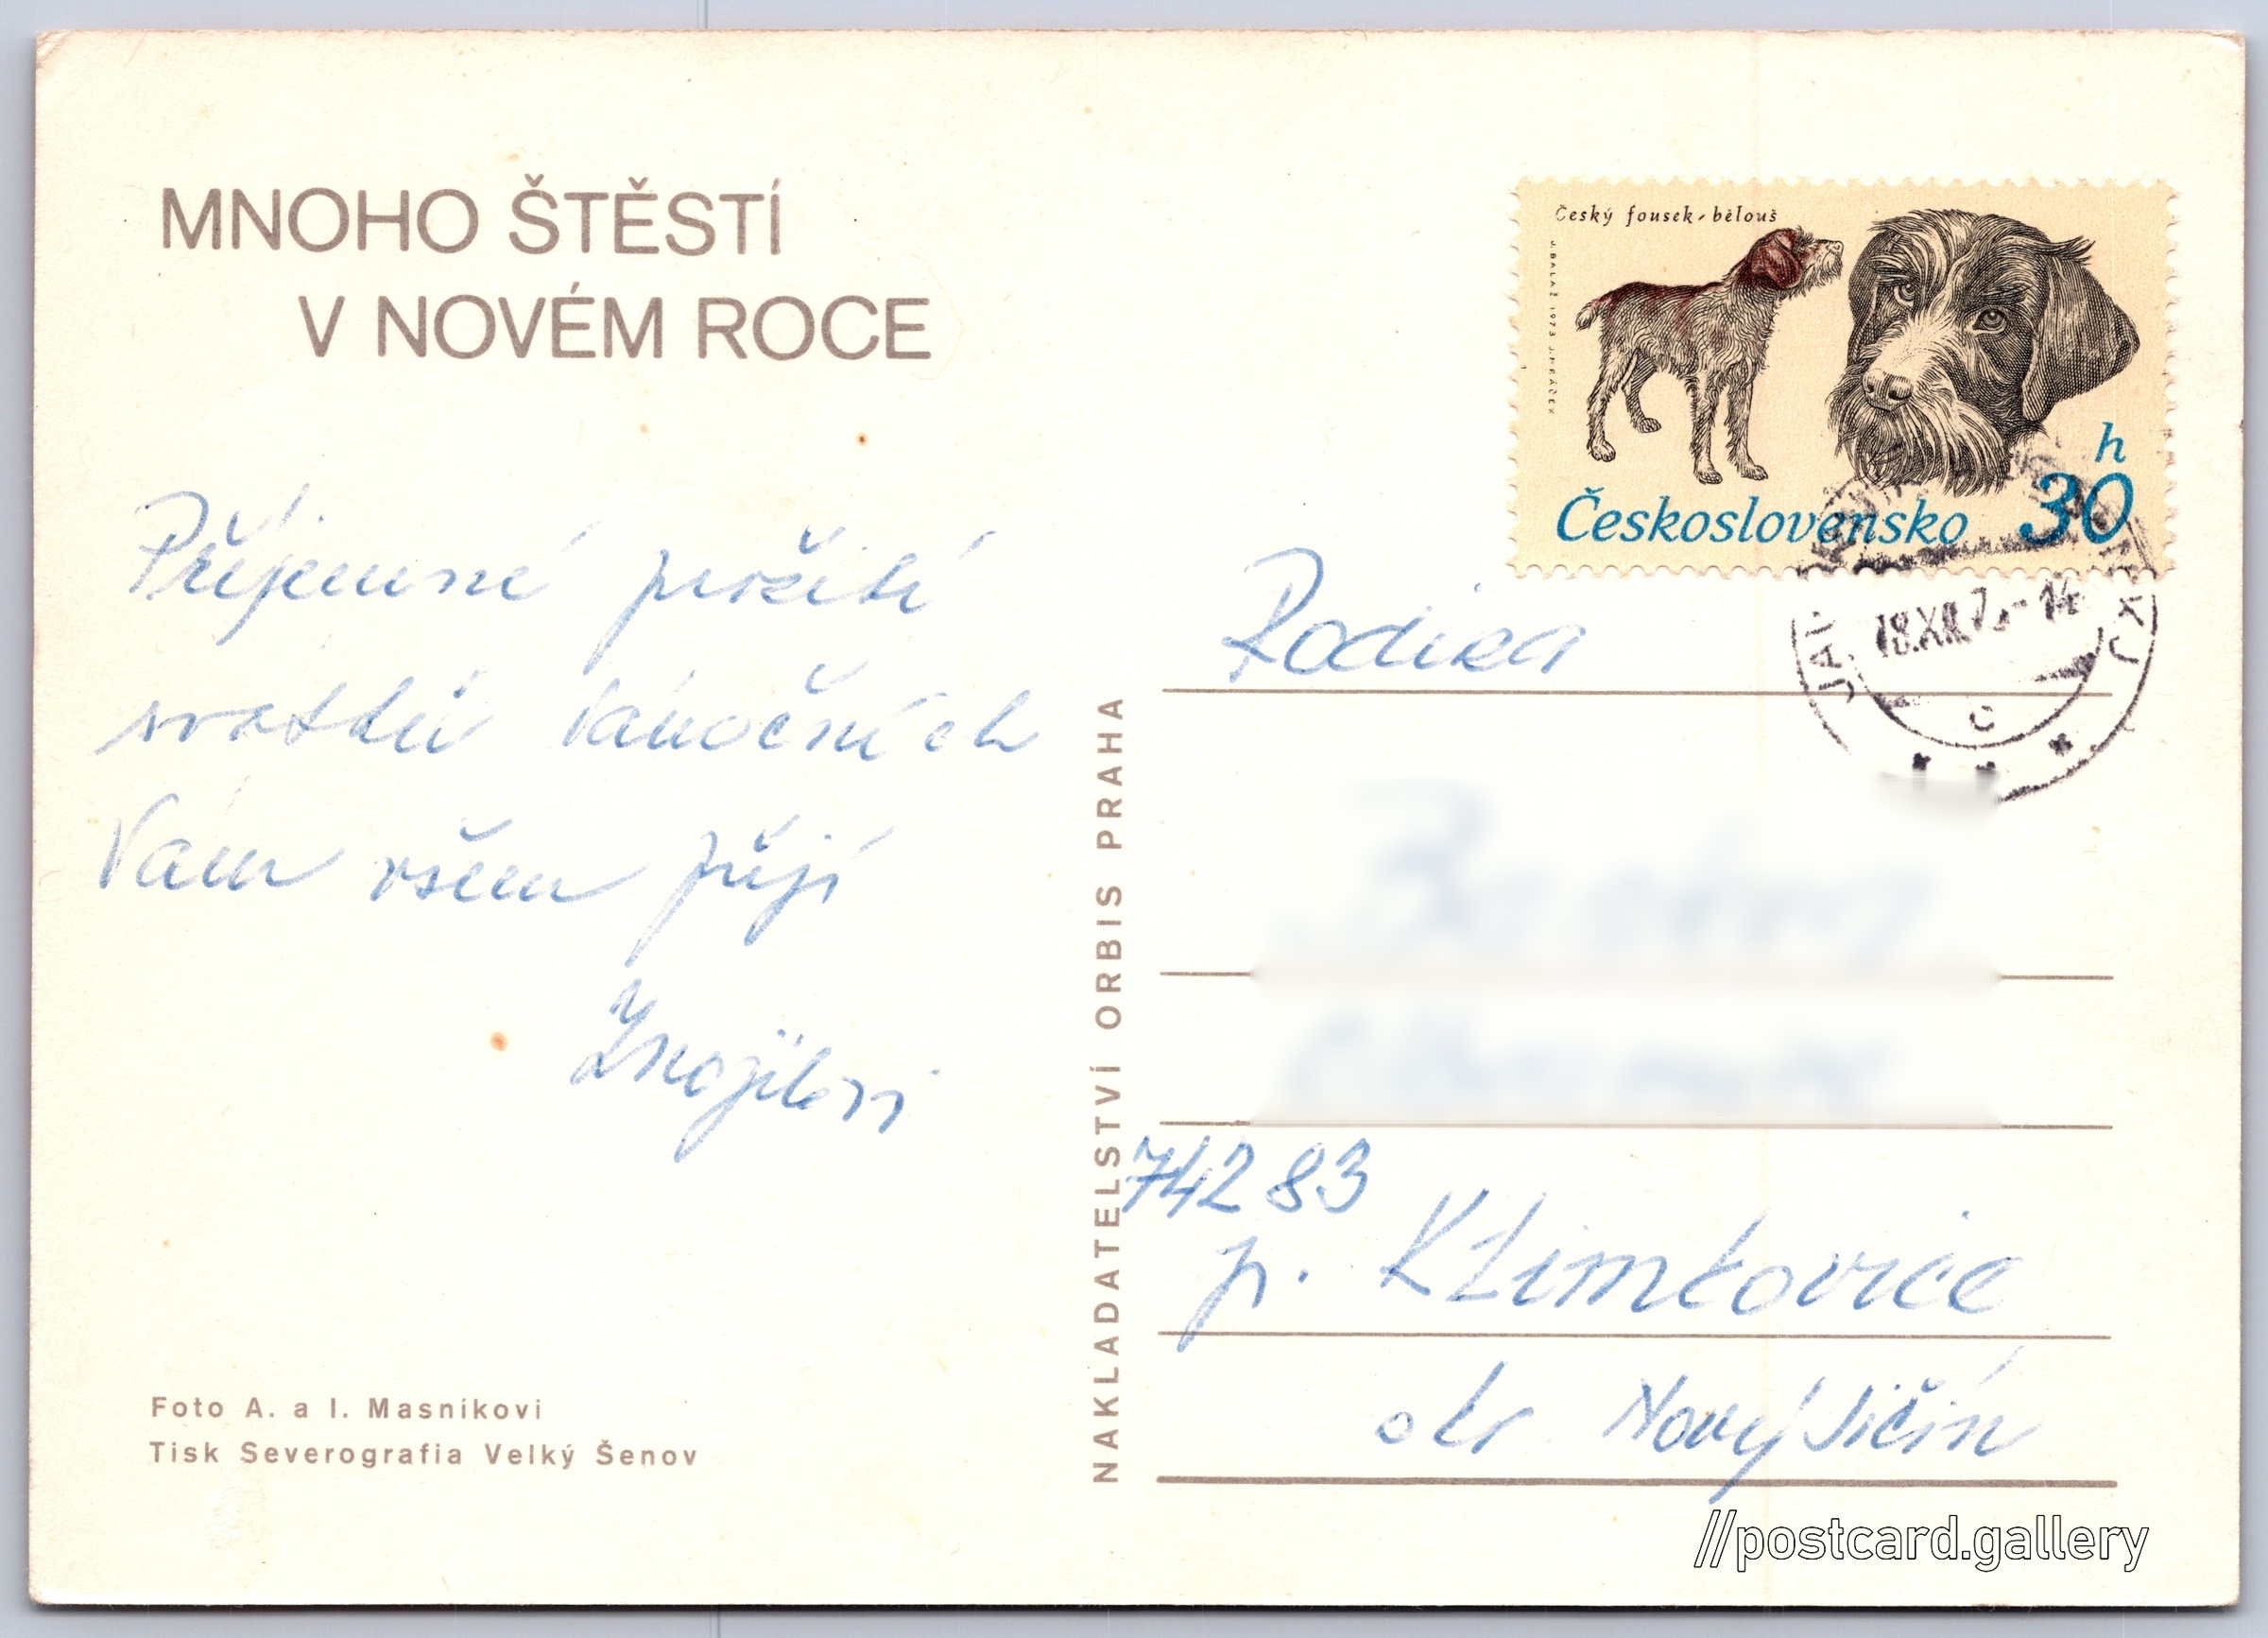 MNOHO ŠTĚSTÍ
V NOVÉM ROCE
Příjemné prožití
svátků vánočních
Vám všem přejí
Foto A. a I. Masníkovi
Tisk Severografia Velký Šenov
NAKLADATELSTVÍ ORBIS PRAHA
Český fousek-bělouš
J. BALAŽ 1973 J. MRÁČEK
h
30
Československo
18.XII.7 -14
C
Rodina
742 83
p. Klimkovice
okr. Nový Jičín
//postcard.gallery